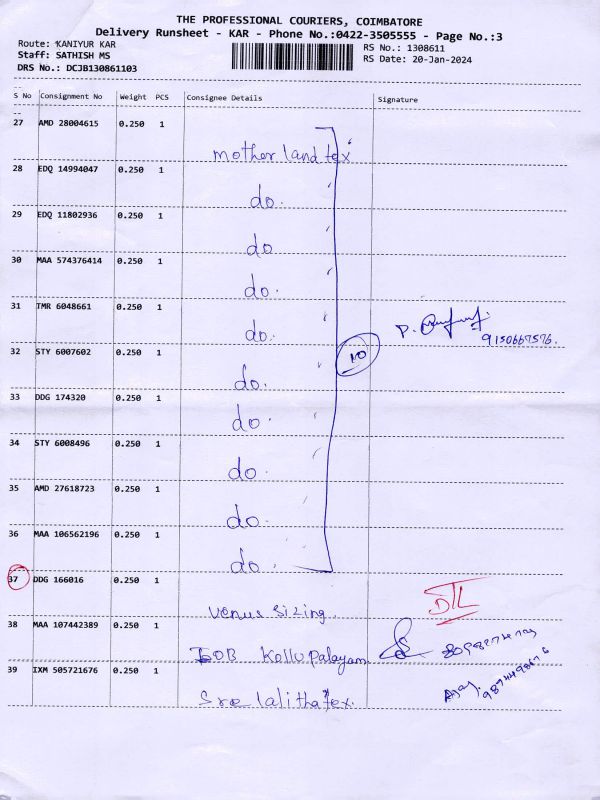 THE PROFESSIONAL COURIERS, COIMBATORE
Delivery Runsheet - KAR - Phone No.:0422-3505555 - Page No.:3
Route: KANIYUR KAR
RS No.: 1308611
Staff: SATHISH MS
RS Date: 20-Jan-2024
DRS No.: DCJB130861103
S No Consignment No Weight PCS Consignee Details Signature
27 AMD 28004615 0.250 1
mother land tex
28 EDQ 14994047 0.250 1
do.
29 EDQ 11802936 0.250 1
do
30 MAA 574376414 0.250 1
do.
31 TMR 6048661 0.250 1
do. P.
9150667576.
32 STY 6007602 0.250 1
10
do.
33 DDG 174320 0.250 1
do.
34 STY 6008496 0.250 1
do.
35 AMD 27618723 0.250 1
do.
36 MAA 106562196 0.250 1
do.
37 DDG 166016 0.250 1
Venus Sizing. DTL
38 MAA 107442389 0.250 1
IOB Kollupalayam
39 IXM 505721676 0.250 1
Sree lalitha tex.